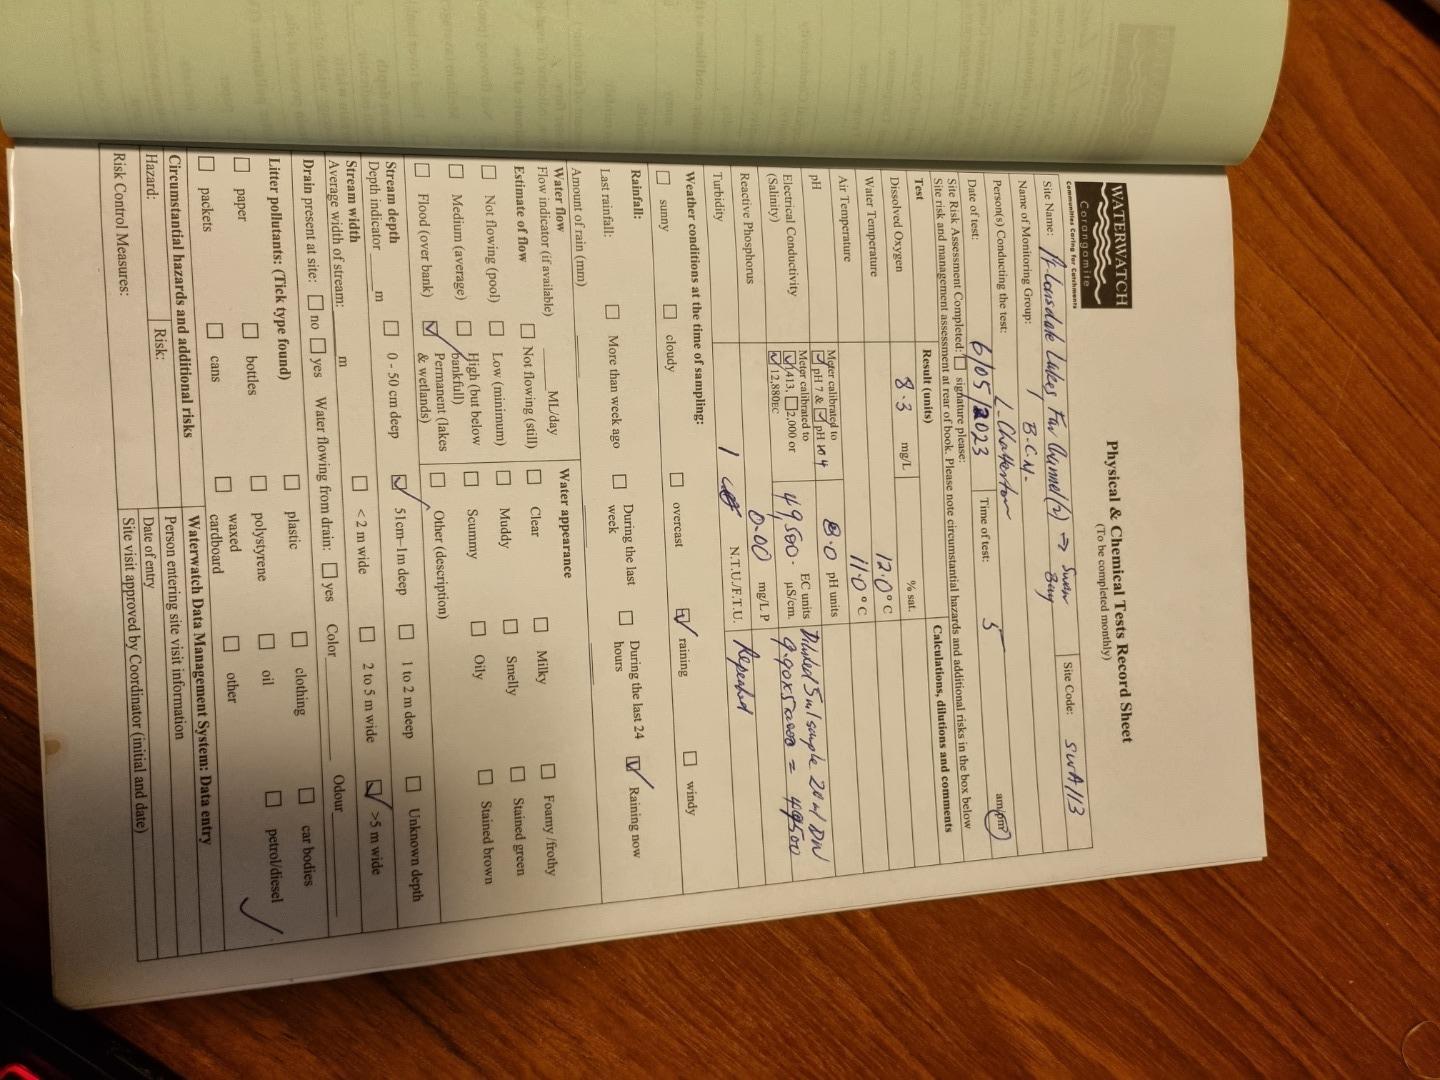 WATERWATCH
Corangamite
Communities Caring for Catchments
Physical & Chemical Tests Record Sheet
(To be completed monthly)
Site Name: Pt Lonsdale Lakes Far Tunnel(2) → Swan Bay
Site Code: SWA113
Name of Monitoring Group: B.C.N.
Person(s) Conducting the test: L. Chatterton
Date of test: 6/05/2023 Time of test: 5 am/pm
Site Risk Assessment Completed: signature please:
Site risk and management assessment at rear of book. Please note circumstantial hazards and additional risks in the box below
Test Result (units) Calculations, dilutions and comments
Dissolved Oxygen 8.3 mg/L % sat.
Water Temperature 12.0 °C
Air Temperature 11.0 °C
pH Meter calibrated to pH 7 & pH 4 8.0 pH units
Electrical Conductivity (Salinity) Meter calibrated to 1413, 2,000 or 12,880EC 49,500 EC units µS/cm. Diluted 5ml sample 20ml DW
= 49500
Reactive Phosphorus 0.00 mg/L P Repeated
Turbidity N.T.U./F.T.U.
Weather conditions at the time of sampling:
sunny cloudy overcast raining windy
Rainfall:
Last rainfall: More than week ago During the last week During the last 24 hours Raining now
Amount of rain (mm)
Water flow
Flow indicator (if available) ML/day
Estimate of flow Not flowing (still)
Not flowing (pool) Low (minimum)
Medium (average) High (but below bankfull)
Flood (over bank) Permanent (lakes & wetlands)
Water appearance
Clear Milky Foamy /frothy
Muddy Smelly Stained green
Scummy Oily Stained brown
Other (description)
Stream depth
Depth indicator m 0 - 50 cm deep 51cm–1m deep 1 to 2 m deep Unknown depth
Stream width
Average width of stream: m < 2 m wide 2 to 5 m wide >5 m wide
Drain present at site: no yes Water flowing from drain: yes Color Odour
Litter pollutants: (Tick type found) plastic clothing car bodies
paper bottles polystyrene oil petrol/diesel
packets cans waxed cardboard other
Circumstantial hazards and additional risks
Hazard: Risk:
Risk Control Measures:
Waterwatch Data Management System: Data entry
Person entering site visit information
Date of entry
Site visit approved by Coordinator (initial and date)